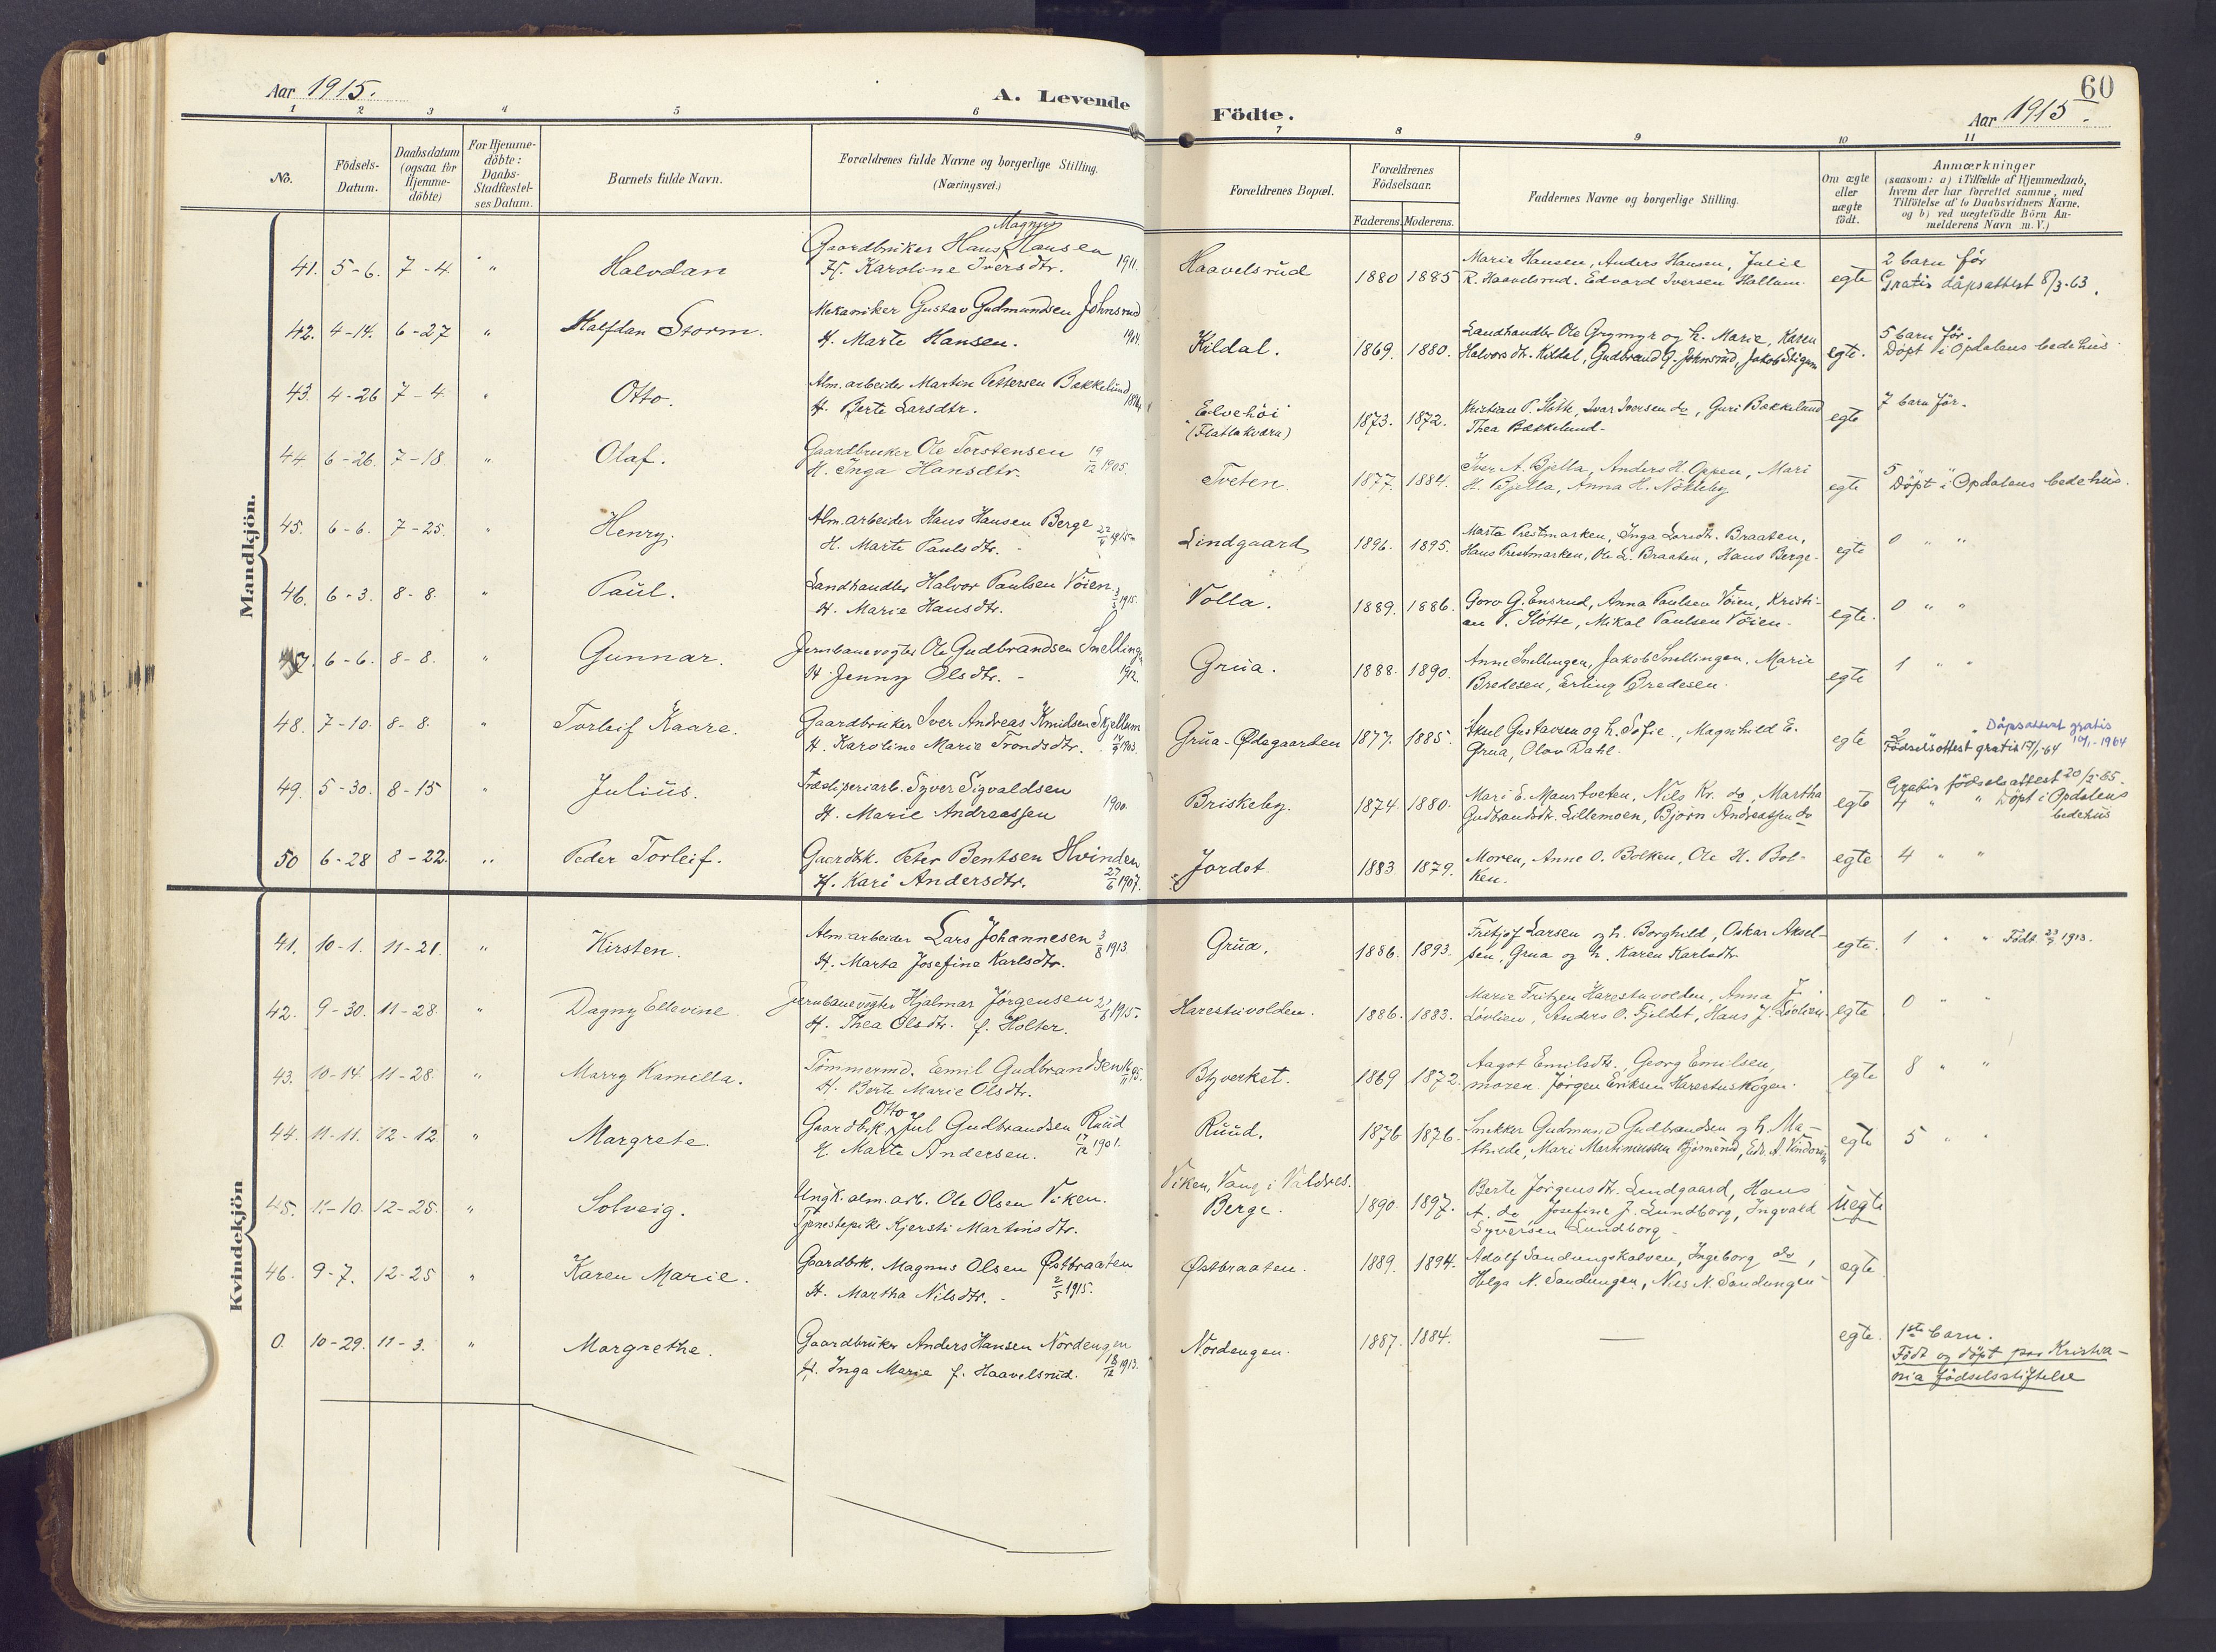 Aar 1915.
A. Levende
Födte.
Aar 1915.
60
1 2 3 4 5 6 7 8 9 10 11
No.
Födsels-
Datum.
Daabsdatum
(ogsaa for
Hjemme-
döbte)
For Hjemme-
döbte:
Daabs-
Stadfæstel-
ses Datum.
Barnets fulde Navn.
Forældrenes fulde Navne og borgerlige Stilling.
(Næringsvei.)
Forældrenes Bopæl.
Forældrenes
Födselsaar.
Faderens. Moderens.
Faddernes Navne og borgerlige Stilling.
Om ægte
eller
uægte
født.
Anmærkninger
(saasom: a) i Tilfælde af Hjemmedaab,
hvem der har forrettet samme, med
Tilföielse af to Daabsvidners Navne.
og b) ved uægtefödte Börn An-
melderens Navn m. V.)
Mandkjön.
Magnus
Gaardbruker Hans Hansen
41. 5-6. 7-4. " Halvdan
H. Karoline Iversdtr. 1911.
Haavelsrud 1880 1885
Marie Hansen, Anders Hansen, Julie
R. Haavelsrud. Edvard Iversen Hallum.
egte
2 barn för
Gratis dåpsattest 8/3-63.
Mekaniker Gustav Gudmundsen Johnsrud
42. 4-14. 6-27 " Halfdan Storm.
H. Marte Hansen.
Kildal. 1869. 1880.
Landhandler Ole Grymyr og h. Marie, Karen
Halvorsdtr. Kildal, Gudbrand G. Johnsrud, Jakob Stigum
egte.
5 barn för.
Döpt i Opdalens bedehus.
Alm. arbeider Martin Pettersen Bækkelund
43. 4-26 7-4. " Otto.
H. Berte Larsdtr.
Elvehöi
(Flatlakværn)
1873. 1872.
Kristian P. Slotte, Ivar Iversen do, Guri Bækkelund
Thea Bækkelund.
egte
7 barn för.
Gaardbruker Ole Torstensen 19/12 1905.
44 6-26. 7-18 " Olaf.
H. Inga Hansdtr.
Tveten. 1877. 1884.
Iver A. Bjella, Anders H. Oppen, Mari
H. Bjella, Anna H. Nökleby
egte
5 " "
Döpt i Opdalens bedehus.
Alm. arbeider Hans Hansen Berge 22/4 1915.
45. 6-6. 7-25. " Henry.
H. Marte Paulsdtr.
Lindgaard 1896. 1895.
Marta Prestmarken, Inga Larsdtr. Braaten,
Hans Prestmarken, Ole L. Braaten, Hans Berge.
egte
0 " "
Landhandler Halvor Paulsen Vöien 3/3 1915.
46. 6-3. 8-8. " Paul.
H. Marie Hansdtr.
Volla. 1889. 1886.
Goro G. Ensrud, Anna Paulsen Vöien, Kristi-
an P. Slötte, Mikal Paulsen Vöien.
egte.
0 " "
Jernbanevogter Ole Gudbrandsen Snellingen
47. 6-6. 8-8. " Gunnar.
H. Jenny Olsdtr. 1912.
Grua. 1888. 1890.
Anne Snellingen, Jakob Snellingen. Marie
Bredesen, Erling Bredesen.
egte
1 " "
Gaardbruker Iver Andreas Knudsen Skjellum
48. 7-10. 8-8. " Torleif Kaare.
H. Karoline Marie Trondsdtr. 1903.
Grua-Ødegaarden 1877. 1885.
Aksel Gustavsen og h. Sofie., Magnhild E.
Grua, Olav Dahl.
egte
2 " " Dåpsattest gratis
10/1-1964
Födselsattest gratis 17/1-64
Træsliperiarb. Syver Sigvaldsen
49. 5-30. 8-15 " Julius.
H. Marie Andreassen 1900.
Briskeby. 1874. 1880.
Mari E. Maurtveten, Nils Kr. do, Martha
Gudbrandsdtr. Lillemoen, Björn Andreassen do
egte
Gratis födselsattest 20/5-65.
4 " " Döpt i Opdalens
bedehus
Gaardbk. Peter Bentsen Hvinden
50 6-28 8-22. " Peder Torleif.
H. Kari Andersdtr. 27/6 1907.
Jordet 1883 1879.
Moren, Anne O. Bolken, Ole H. Bol-
ken.
egte
4 " "
Kvindekjön
Alm. arbeider Lars Johannesen 3/8 1913
41. 10-1. 11-21. " Kirsten.
H. Marta Josefine Karlsdtr.
Grua, 1886. 1893.
Fritjof Larsen og h. Borghild, Oskar Aksel-
sen, Grua og h. Karen Karlsdtr
egte.
1 " " Födt 23/9 1913.
Jernbanevogter Hjalmar Jörgensen 1915.
42. 9-30. 11-28. " Dagny Ellevine
H. Thea Olsdtr. f. Holter.
Harestuvolden. 1886. 1883.
Marie Fritzen Harestuvolden, Anna J.
Lövlien, Anders O. Fjeldet, Hans J. Lövlien.
egte
0 " "
Tömmermd. Emil Gudbrandsen
43. 10-14. 11-28. " Marry Kamilla.
H. Berte Marie Olsdtr.
Blyverket. 1869 1872.
Aagot Emilsdtr., Georg Emilsen,
moren. Jörgen Eriksen Harestuskogen.
egte
8 " "
Otto
Gaardbrk. Jul Gudbrandsen Ruud
44. 11-11. 12-12. " Margrete.
H. Marte Andersen. 17/12 1901.
Ruud. 1876 1876.
Snekker Gudmund Gudbrandsen og h. Ma-
thilde, Mari Martiniussen Bjørnerud, Edv. A.
egte
5 " "
Ungk. alm. arb. Ole Olsen Viken.
45. 11-10. 12-25. " Solveig.
Tjenestepike Kjersti Martinsdtr.
Viken, Vang i Valdres.
Berge. 1890. 1897.
Berte Jörgensdtr. Lundgaard, Hans
A. do Josefine J. Lundborg, Ingvald
Syversen Lundborg.
Uegte
Gaardbrk. Magnus Olsen Østbraaten
46. 9-7. 12-25 " Karen Marie.
H. Martha Nilsdtr. 2/5 1915.
Østbraaten. 1889. 1894.
Adolf Sandungskalven, Ingeborg do,
Helga N. Sandungen, Nils N. Sandungen
egte
Gaardbruker Anders Hansen Nordengen
0. 10-29. 11-3. " Margrethe.
H. Inga Marie f. Haavelsrud. 18/12 1913.
Nordengen. 1887. 1884.
—
egte.
1ste barn.
Födt og döpt paa Kristia-
nia födselsstiftelse